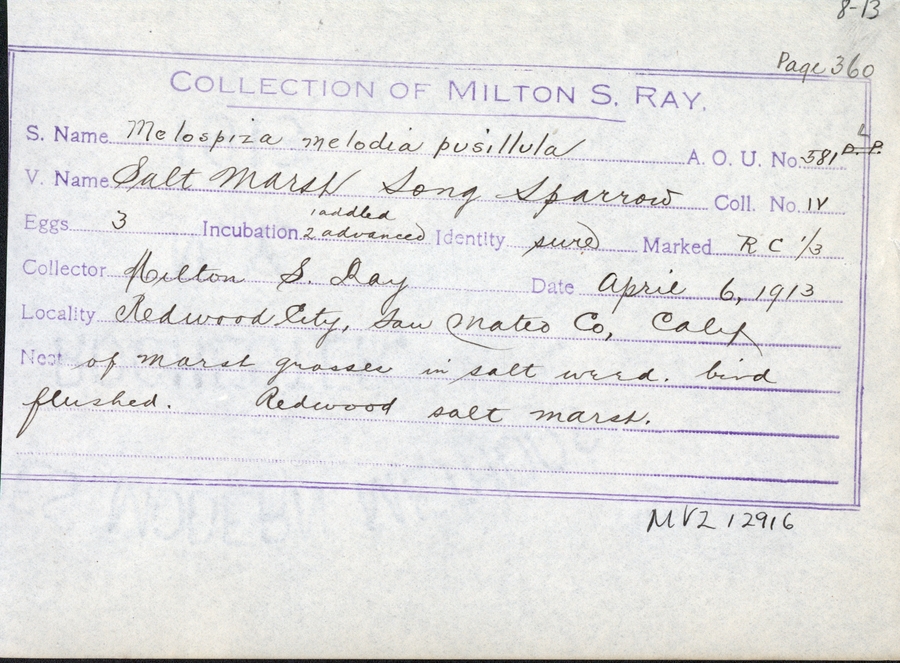 8-13
Page 360
COLLECTION OF MILTON S. RAY.
S. Name Melospiza melodia pusillula A. O. U. No. 581 L P. P.
V. Name Salt Marsh Song Sparrow Coll. No. IV
Eggs 3 Incubation 1 addled 2 advanced Identity sure Marked RC 1/3
Collector Milton S. Ray Date April 6, 1913
Locality Redwood City, San Mateo Co, Calif
Nest of marsh grasses in salt weed. bird
flushed. Redwood salt marsh.
MVZ 12916